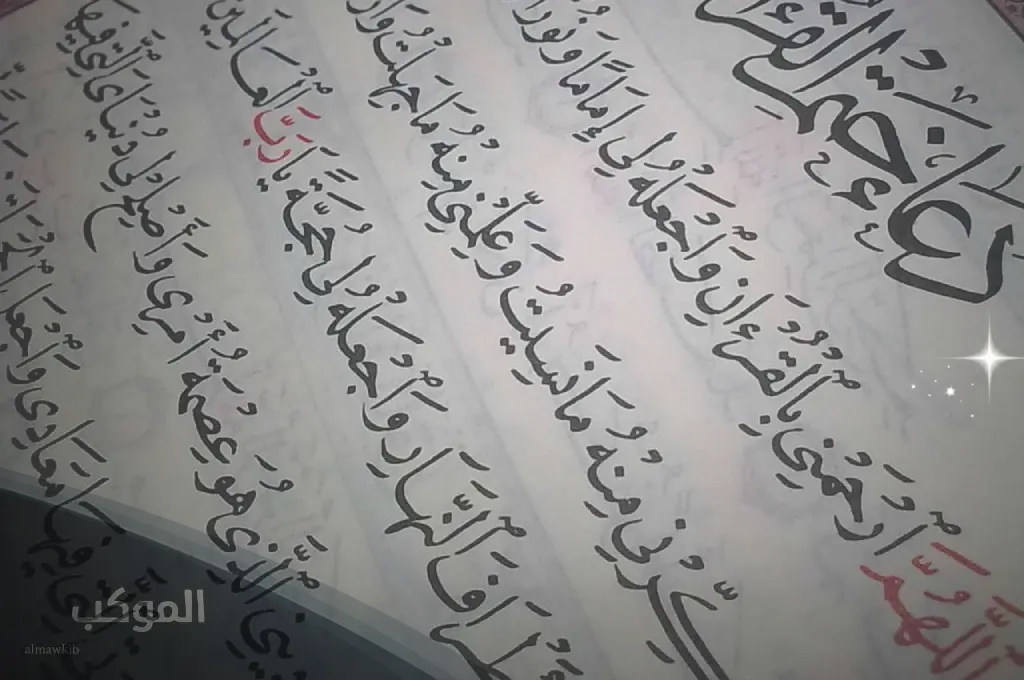 دُعَاءُ خَتْمِ الْقُرْءَ
اَللَّهُمَّ ارْحَمْنِي بِالْقُرْءَانِ وَاجْعَلْهُ لِي إِمَامًا وَنُورًا
كِّرْنِي مِنْهُ مَا نَسِيتُ وَعَلِّمْنِي مِنْهُ مَا جَهِلْتُ وَارْ
طْرَافَ النَّهَارِ وَاجْعَلْهُ لِي حُجَّةً يَا رَبَّ الْعَالَمِينَ
دِينِي الَّذِي هُوَ عِصْمَةُ أَمْرِي وَأَصْلِحْ لِي دُنْيَايَ الَّتِي فِيهَا
الَّتِي فِيهَا مَعَادِي وَاجْعَلِ
الموكب
almawkib